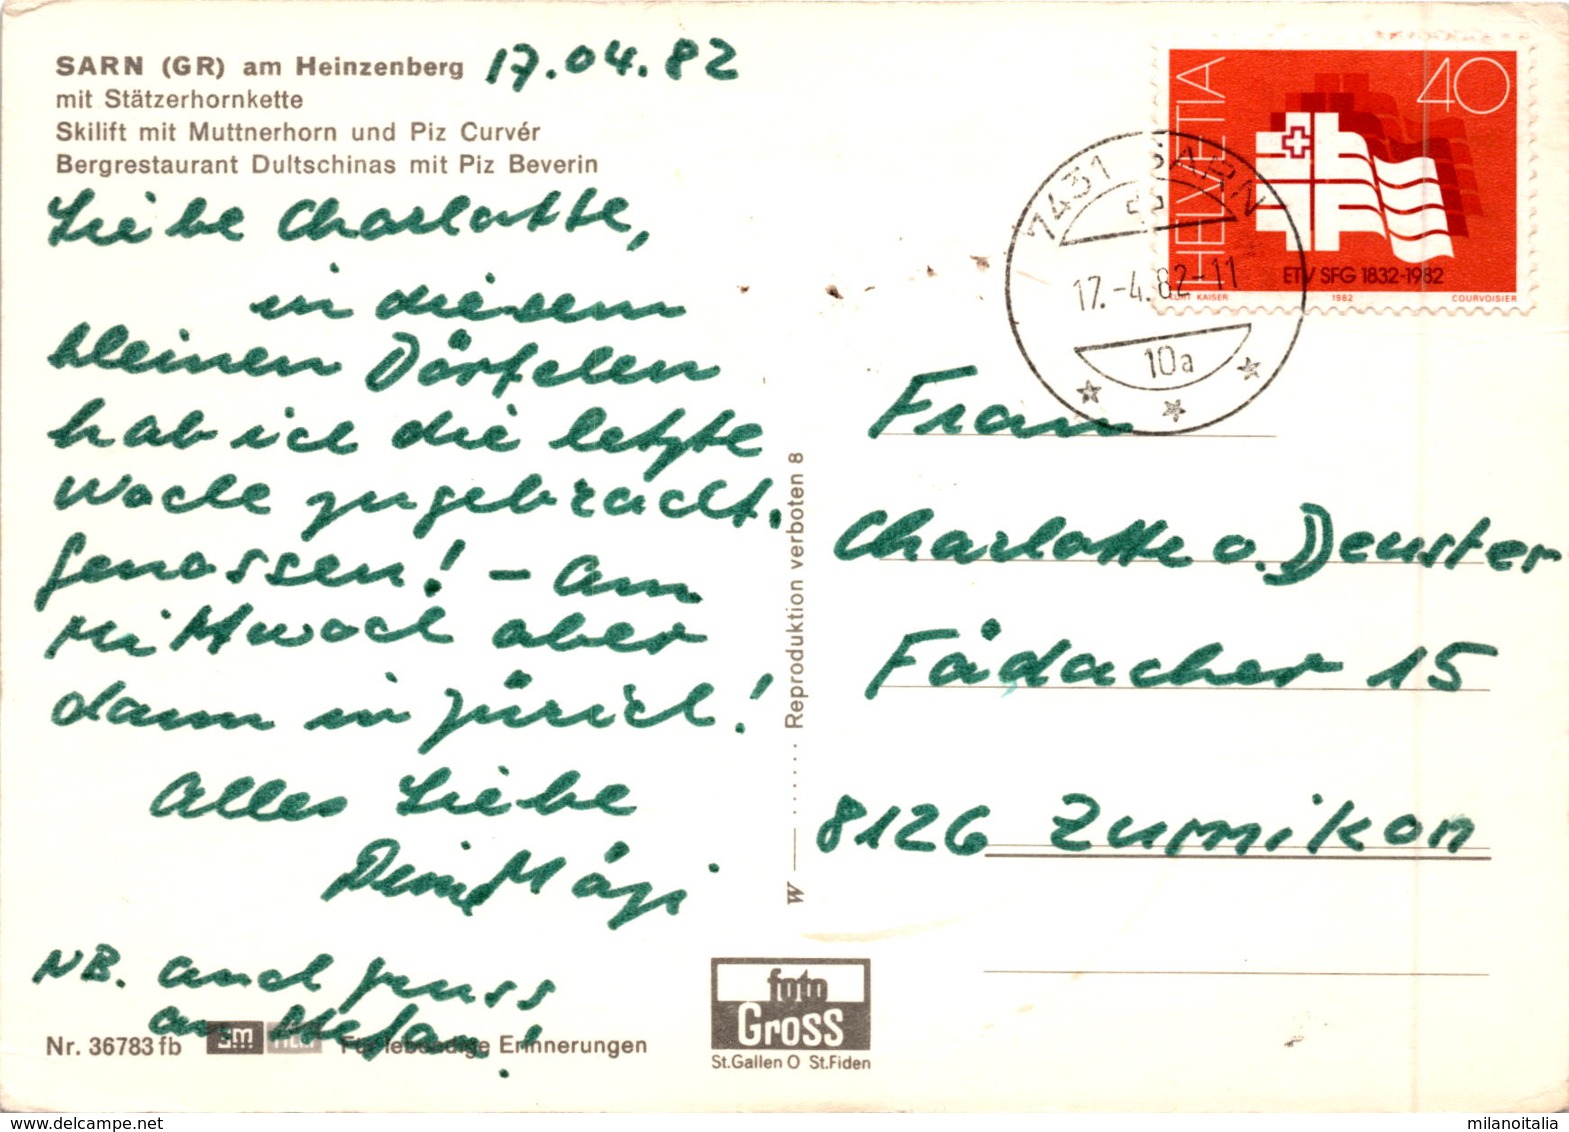 SARN (GR) am Heinzenberg 17.04.82
mit Stätzerhornkette
Skilift mit Muttnerhorn und Piz Curvér
Bergrestaurant Dultschinas mit Piz Beverin
Liebe Charlotte,
in diesem
kleinen Dörfelen
hab ich die letzte
Woche zugebracht.
genossen! – am
Mittwoch aber
dann in Zürich!
Alles Liebe
Deine Mägi
NB. auch gruss
an Stefan!
Nr. 36783 fb Für lebendige Erinnerungen
W Reproduktion verboten 8
foto
Gross
St.Gallen O St.Fiden
HELVETIA
40
ETV SFG 1832-1982
KURT KAISER 1982 COURVOISIER
7431 SARN
17.-4.82-11
10a
Frau
Charlotte v. Deuster
Fädacher 15
8126 Zumikon
www.delcampe.net
milanoitalia